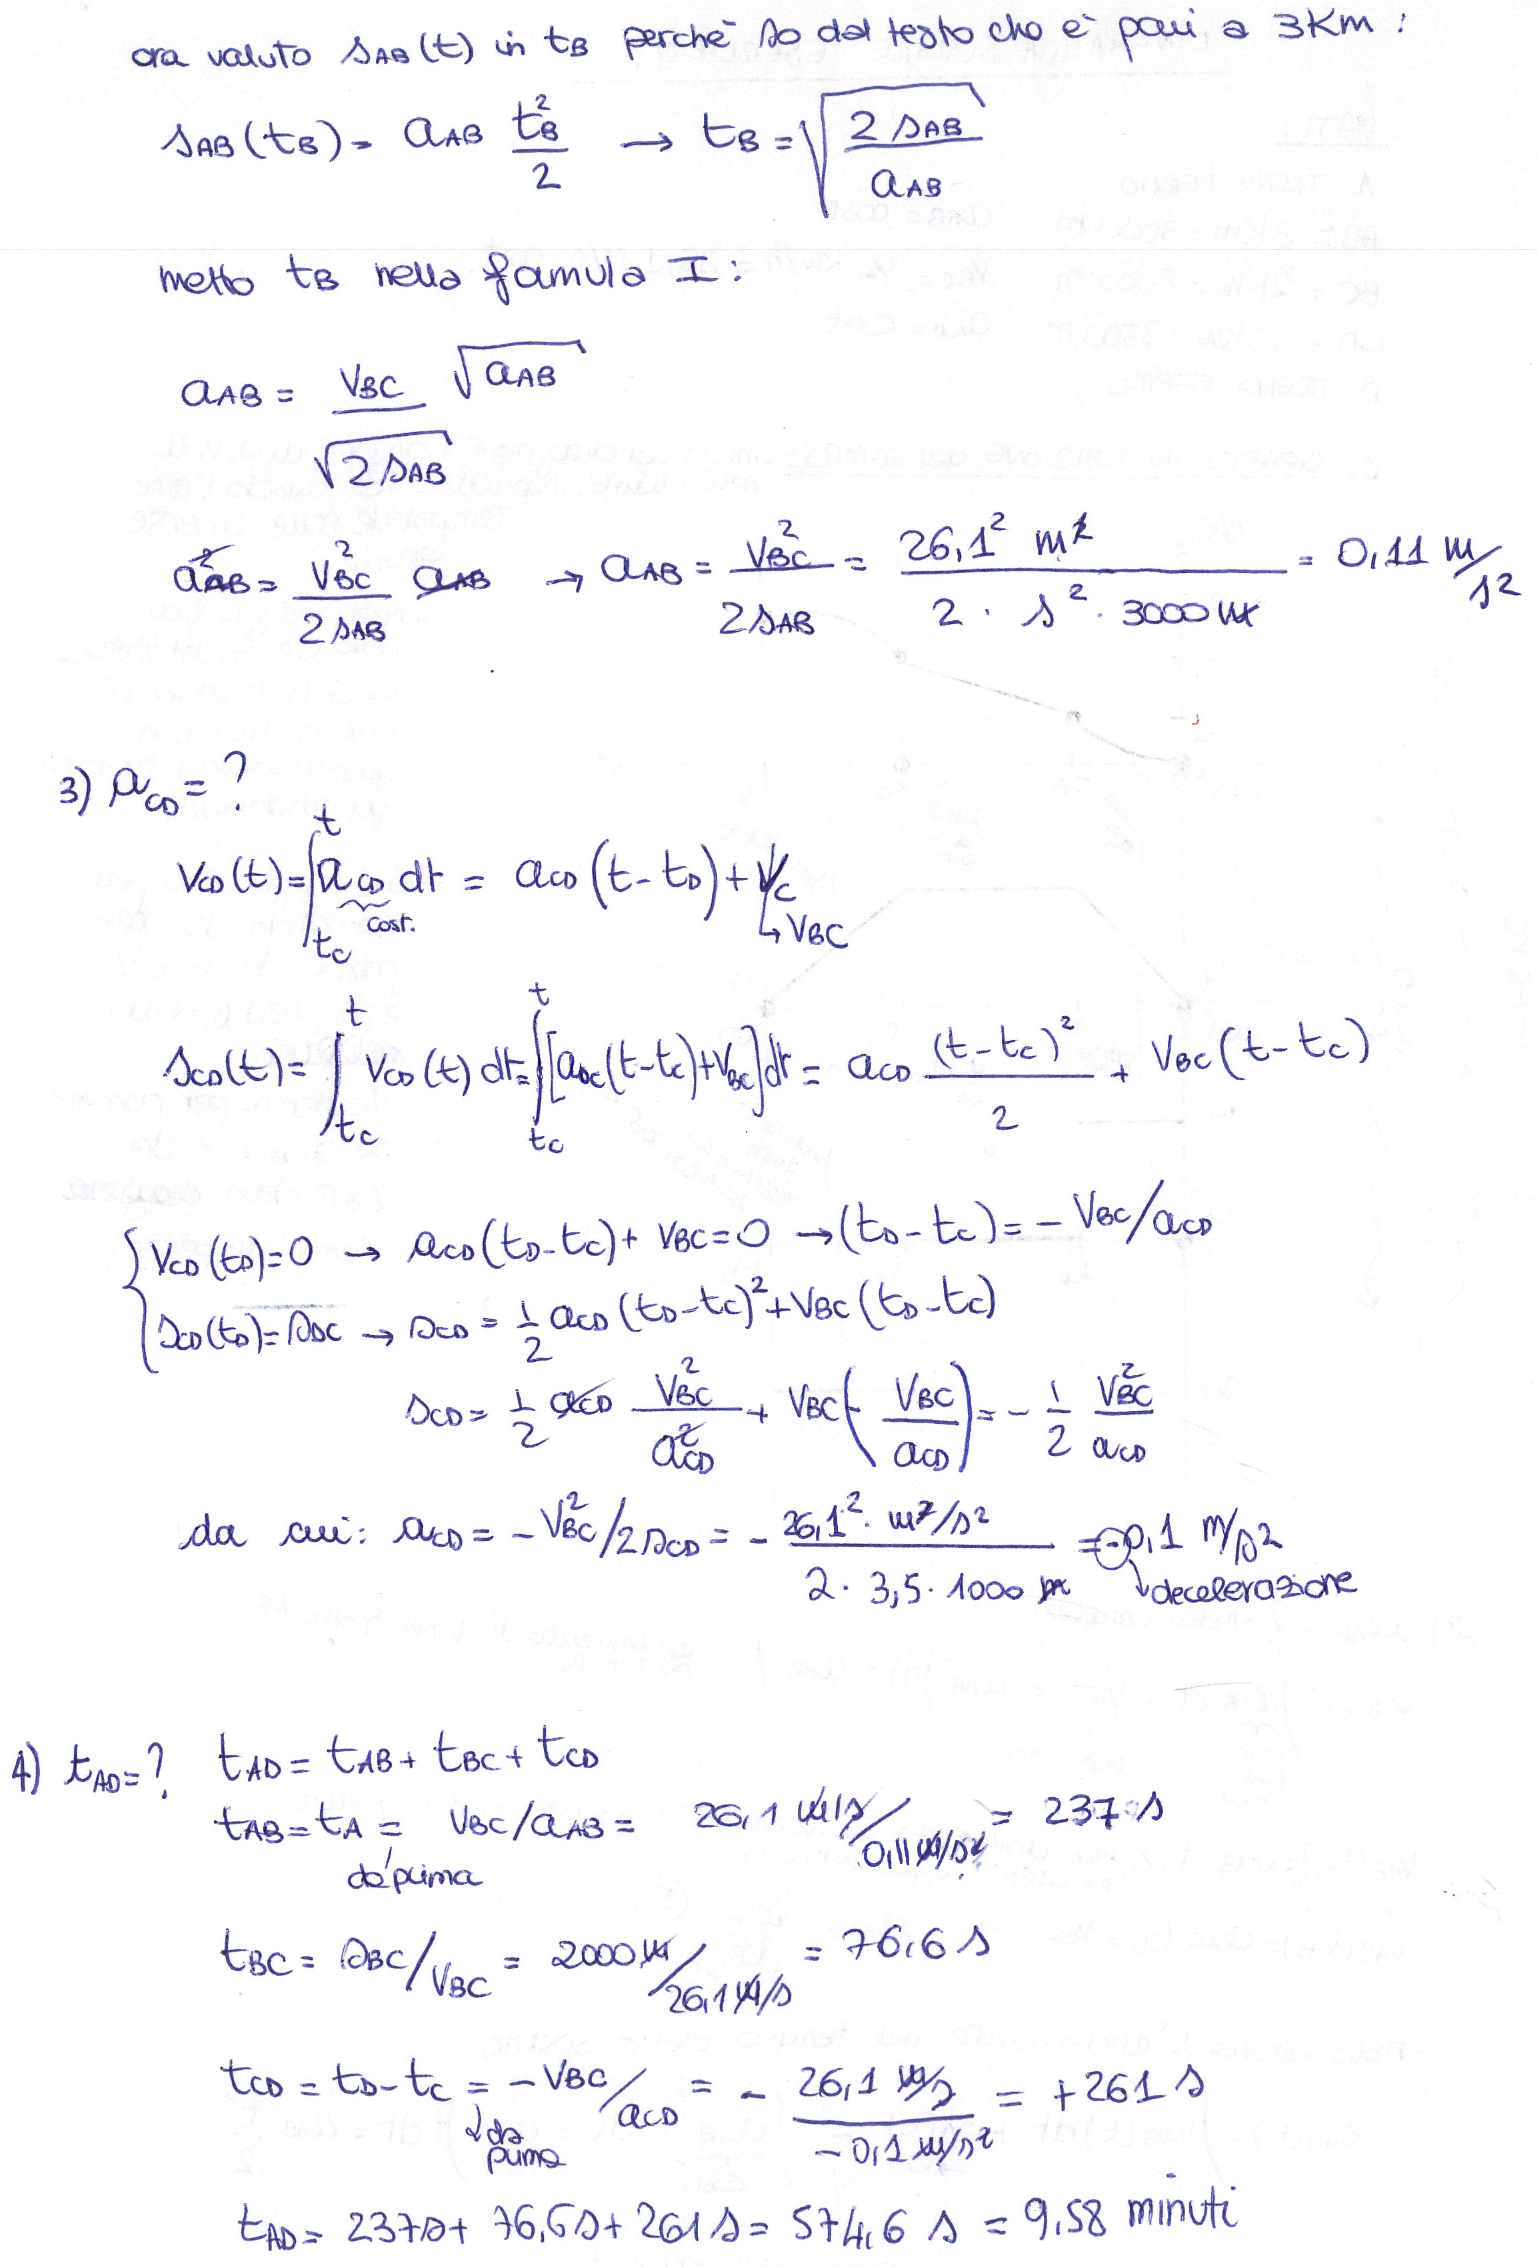 ora valuto sAB(t) in tB perchè so dal testo che è pari a 3Km :
sAB(tB) = aAB tB²/2 → tB = √(2 sAB / aAB)
metto tB nella formula I :
aAB = VBC/√(2sAB) √aAB
aAB² = VBC²/2sAB aAB → aAB = VBC²/2sAB = 26,1² m²/2 · s² · 3000 m = 0,11 m/s²
3) aCD = ?
VCD(t) = ∫tC^t aCD dt = aCD (t - tD) + VC
cost.
↳ VBC
sCD(t) = ∫tC^t VCD(t) dt = ∫tC^t [aDC(t-tC)+VBC]dt = aCD (t-tC)²/2 + VBC (t-tC)
VCD(tD)=0 → aCD(tD-tC)+ VBC=0 → (tD-tC) = - VBC/aCD
sCD(tD)=sDC → sCD = 1/2 aCD (tD-tC)²+VBC (tD-tC)
sCD = 1/2 aCD VBC²/aCD² + VBC (- VBC/aCD) = - 1/2 VBC²/aCD
da cui: aCD = - VBC²/2sCD = - 26,1² · m²/s² / 2 · 3,5 · 1000 m = -0,1 m/s²
↳ decelerazione
4) tAD=? tAD = tAB + tBC + tCD
tAB = tA = VBC/aAB = 26,1 m/s / 0,11 m/s² = 237 s
da prima
tBC = sBC/VBC = 2000 m / 26,1 m/s = 76,6 s
tCD = tD-tC = - VBC/aCD = - 26,1 m/s / -0,1 m/s² = +261 s
↳ da prima
tAD = 237s + 76,6s + 261 s = 574,6 s = 9,58 minuti